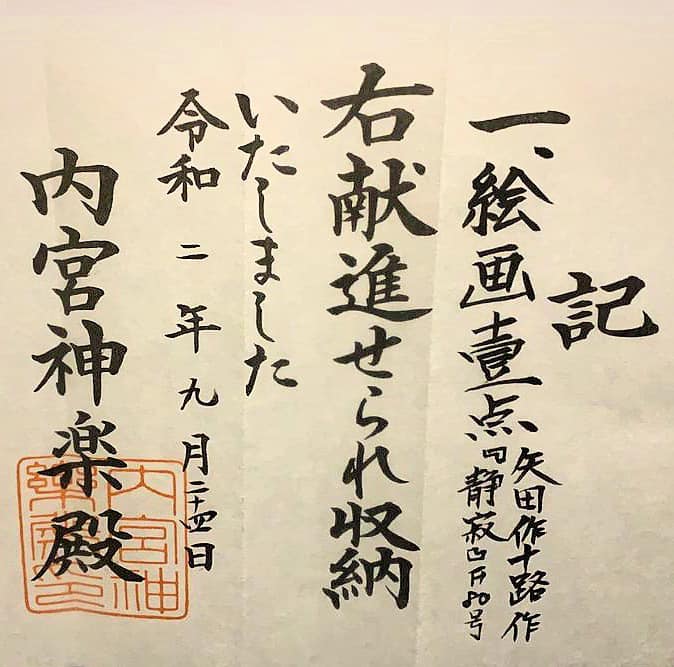 記
一、絵画壹点
矢田作十路作
『静寂』F80号
右献進せられ収納
いたしました
令和二年九月二十四日
内宮神楽殿
内宮神楽殿之印